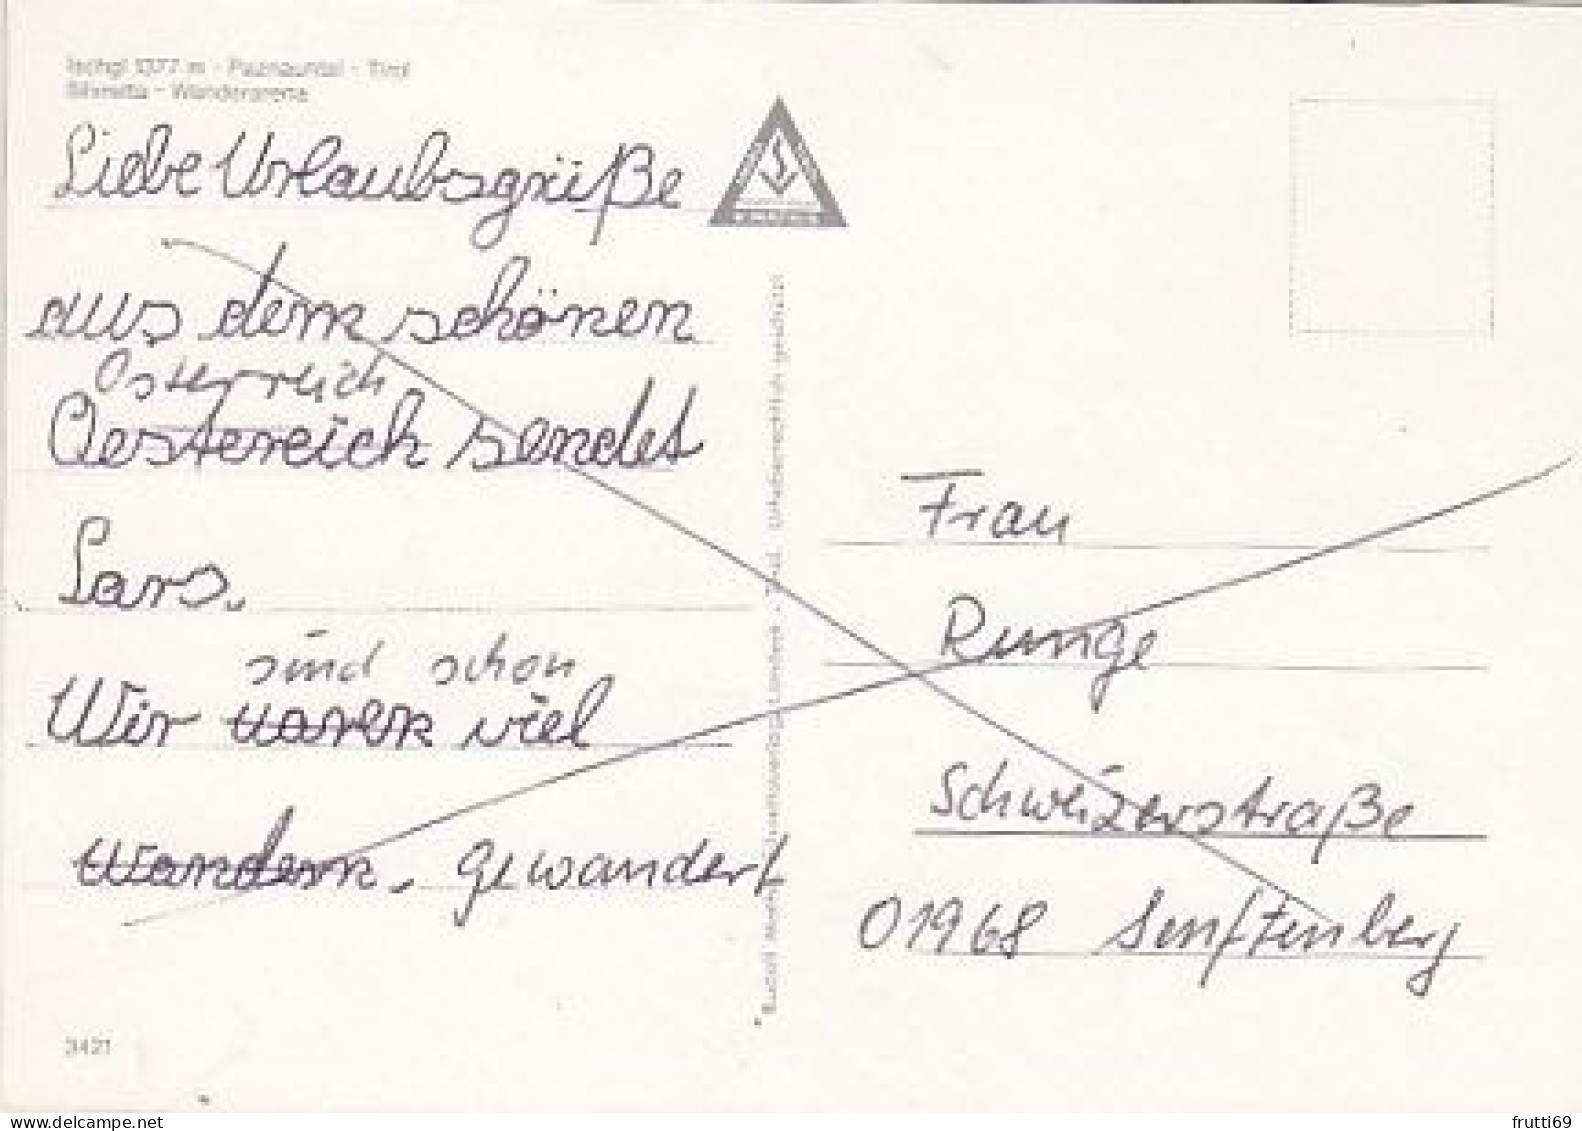 Ischgl 1377 m - Paznauntal - Tirol
Silvretta - Wanderarena
Liebe Urlaubsgrüße
aus dem schönen
Österreich
Oestereich sendet
Lars.
sind schon
Wir waren viel
wandern. gewandert
3421
Frau
Runge
Schweizerstraße
01968 Senftenberg
www.delcampe.net
frutti69